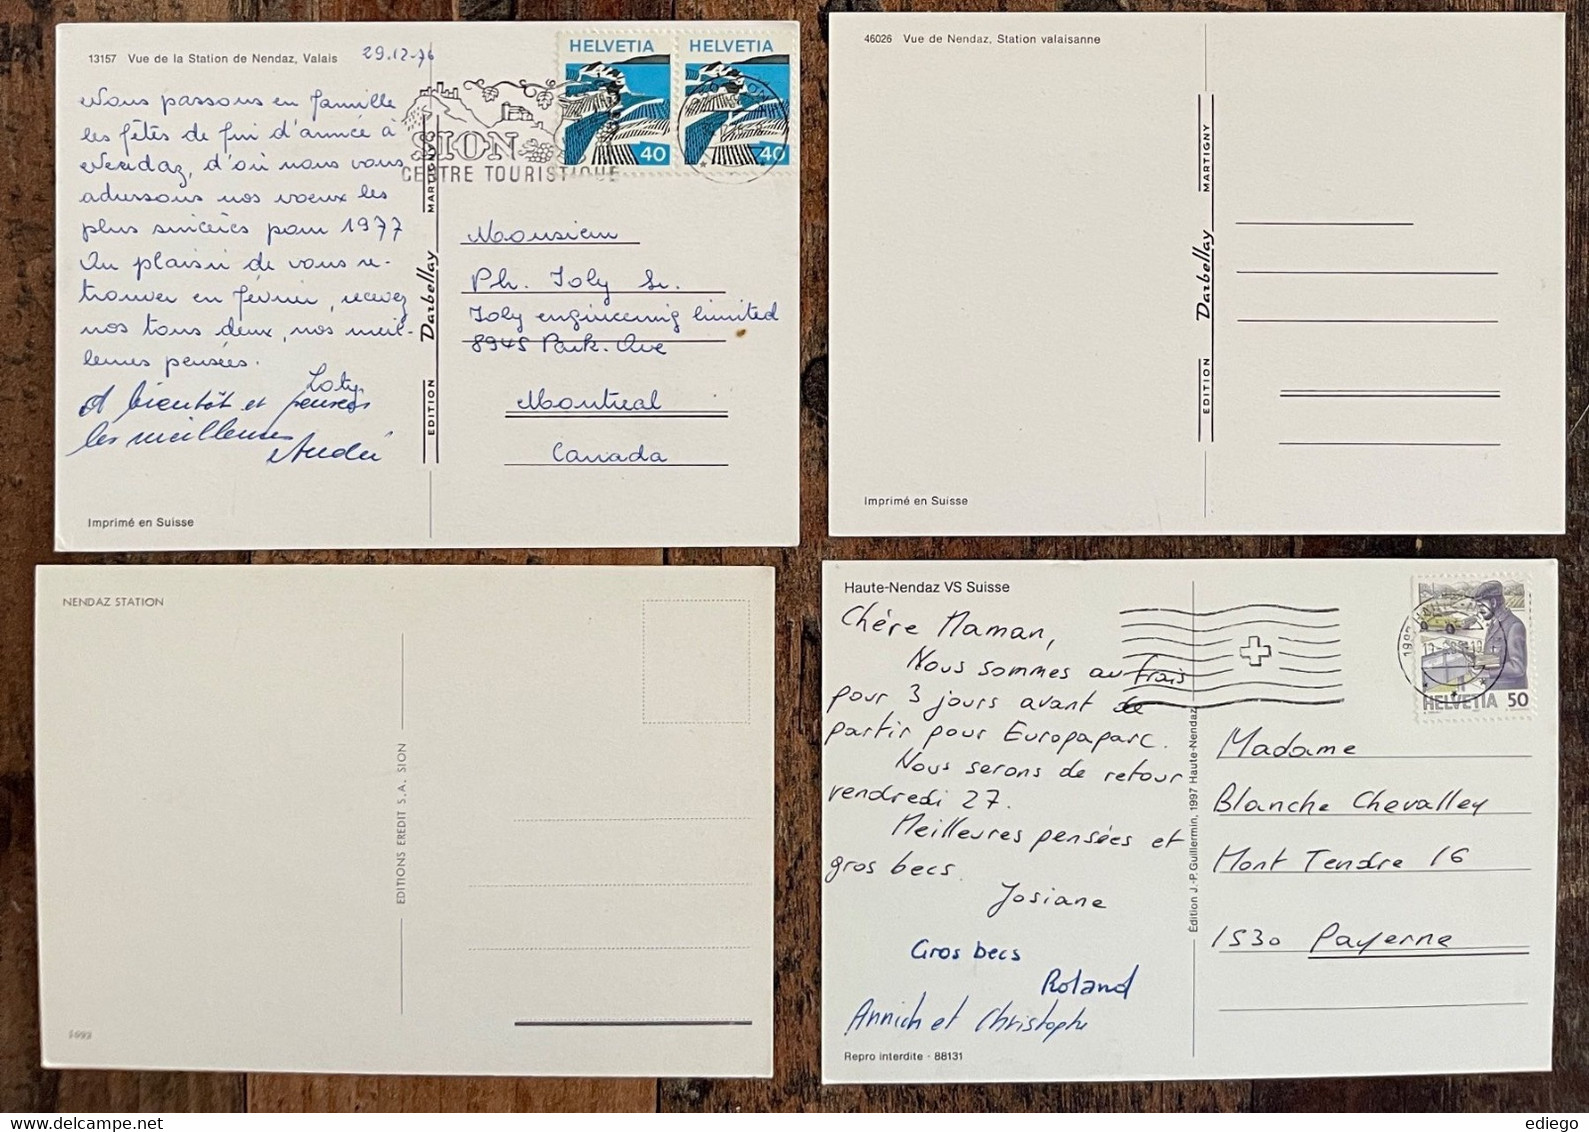 13157 Vue de la Station de Nendaz, Valais
29.12.76
Nous passons en famille
les fêtes de fin d'année à
Nendaz, d'où nous vous
adressons nos voeux les
plus sincères pour 1977
Au plaisir de vous re-
trouver en février, recevez
nos tous deux, nos meil-
leures pensées.
Loty
A bientôt et pensées
les meilleures
André
Imprimé en Suisse
EDITION Darbellay MARTIGNY
SION
CENTRE TOURISTIQUE
HELVETIA
40
HELVETIA
40
Monsieur
Ph. Joly Sr.
Joly engineering limited
8945 Park. Ave
Montreal
Canada
46026 Vue de Nendaz, Station valaisanne
EDITION Darbellay MARTIGNY
Imprimé en Suisse
NENDAZ STATION
EDITIONS EREDIT S.A. SION
Haute-Nendaz VS Suisse
Chère Maman,
Nous sommes au frais
pour 3 jours avant de
partir pour Europaparc.
Nous serons de retour
vendredi 27.
Meilleures pensées et
gros becs.
Josiane
Gros becs
Roland
Annich et Christophe
Repro interdite - 88131
Édition J.-P. Guillermin, 1997 Haute-Nendaz
HELVETIA 50
Madame
Blanche Chevalley
Mont Tendre 16
1530 Payerne
ediego